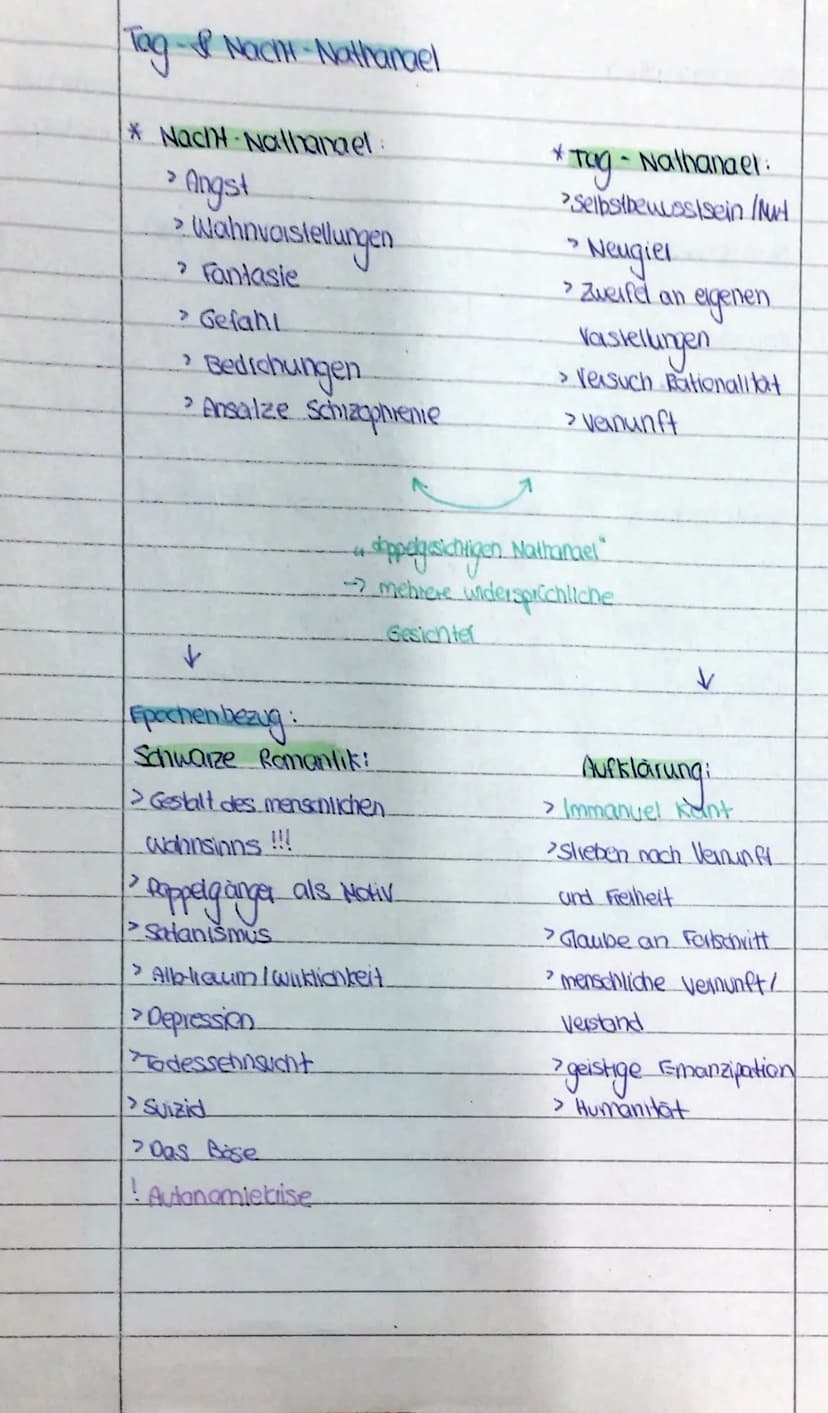 Tag- & Nacht-Nathanael
* Nacht-Nathanael:
> Angst
> Wahnvorstellungen
> Fantasie
> Gefahr
> Bedrohungen
> Ansätze Schizophrenie
* Tag-Nathanael:
> Selbstbewusstsein / Mut
> Neugier
> Zweifel an eigenen
Vorstellungen
> Versuch Rationalität
> Vernunft
„doppelgesichtigen Nathanael"
-> mehrere widersprüchliche
Gesichter
Epochenbezug:
Schwarze Romantik:
> Gestalt des menschlichen
Wahnsinns !!!
> Doppelgänger als Motiv
> Satanismus
> Albtraum / Wirklichkeit
> Depression
> Todessehnsucht
> Suizid
> Das Böse
! Autonomiekrise
Aufklärung:
> Immanuel Kant
> Streben nach Vernunft
und Freiheit
> Glaube an Fortschritt
> menschliche Vernunft /
Verstand
> geistige Emanzipation
> Humanität